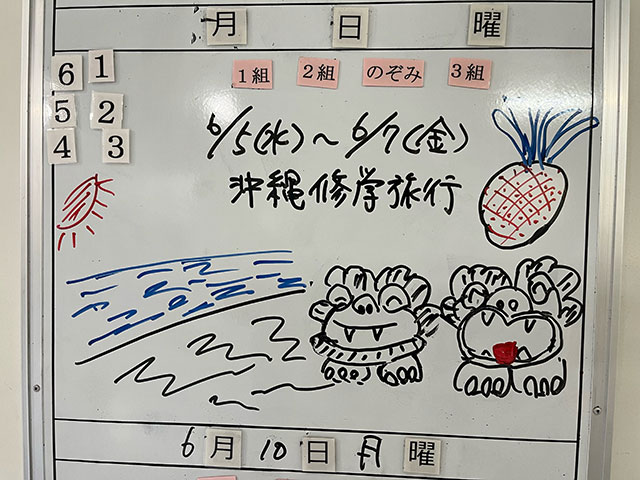 月 日 曜
6 1
5 2
4 3
1組 2組 のぞみ 3組
6/5(水)～6/7(金)
沖縄修学旅行
6月10日月曜